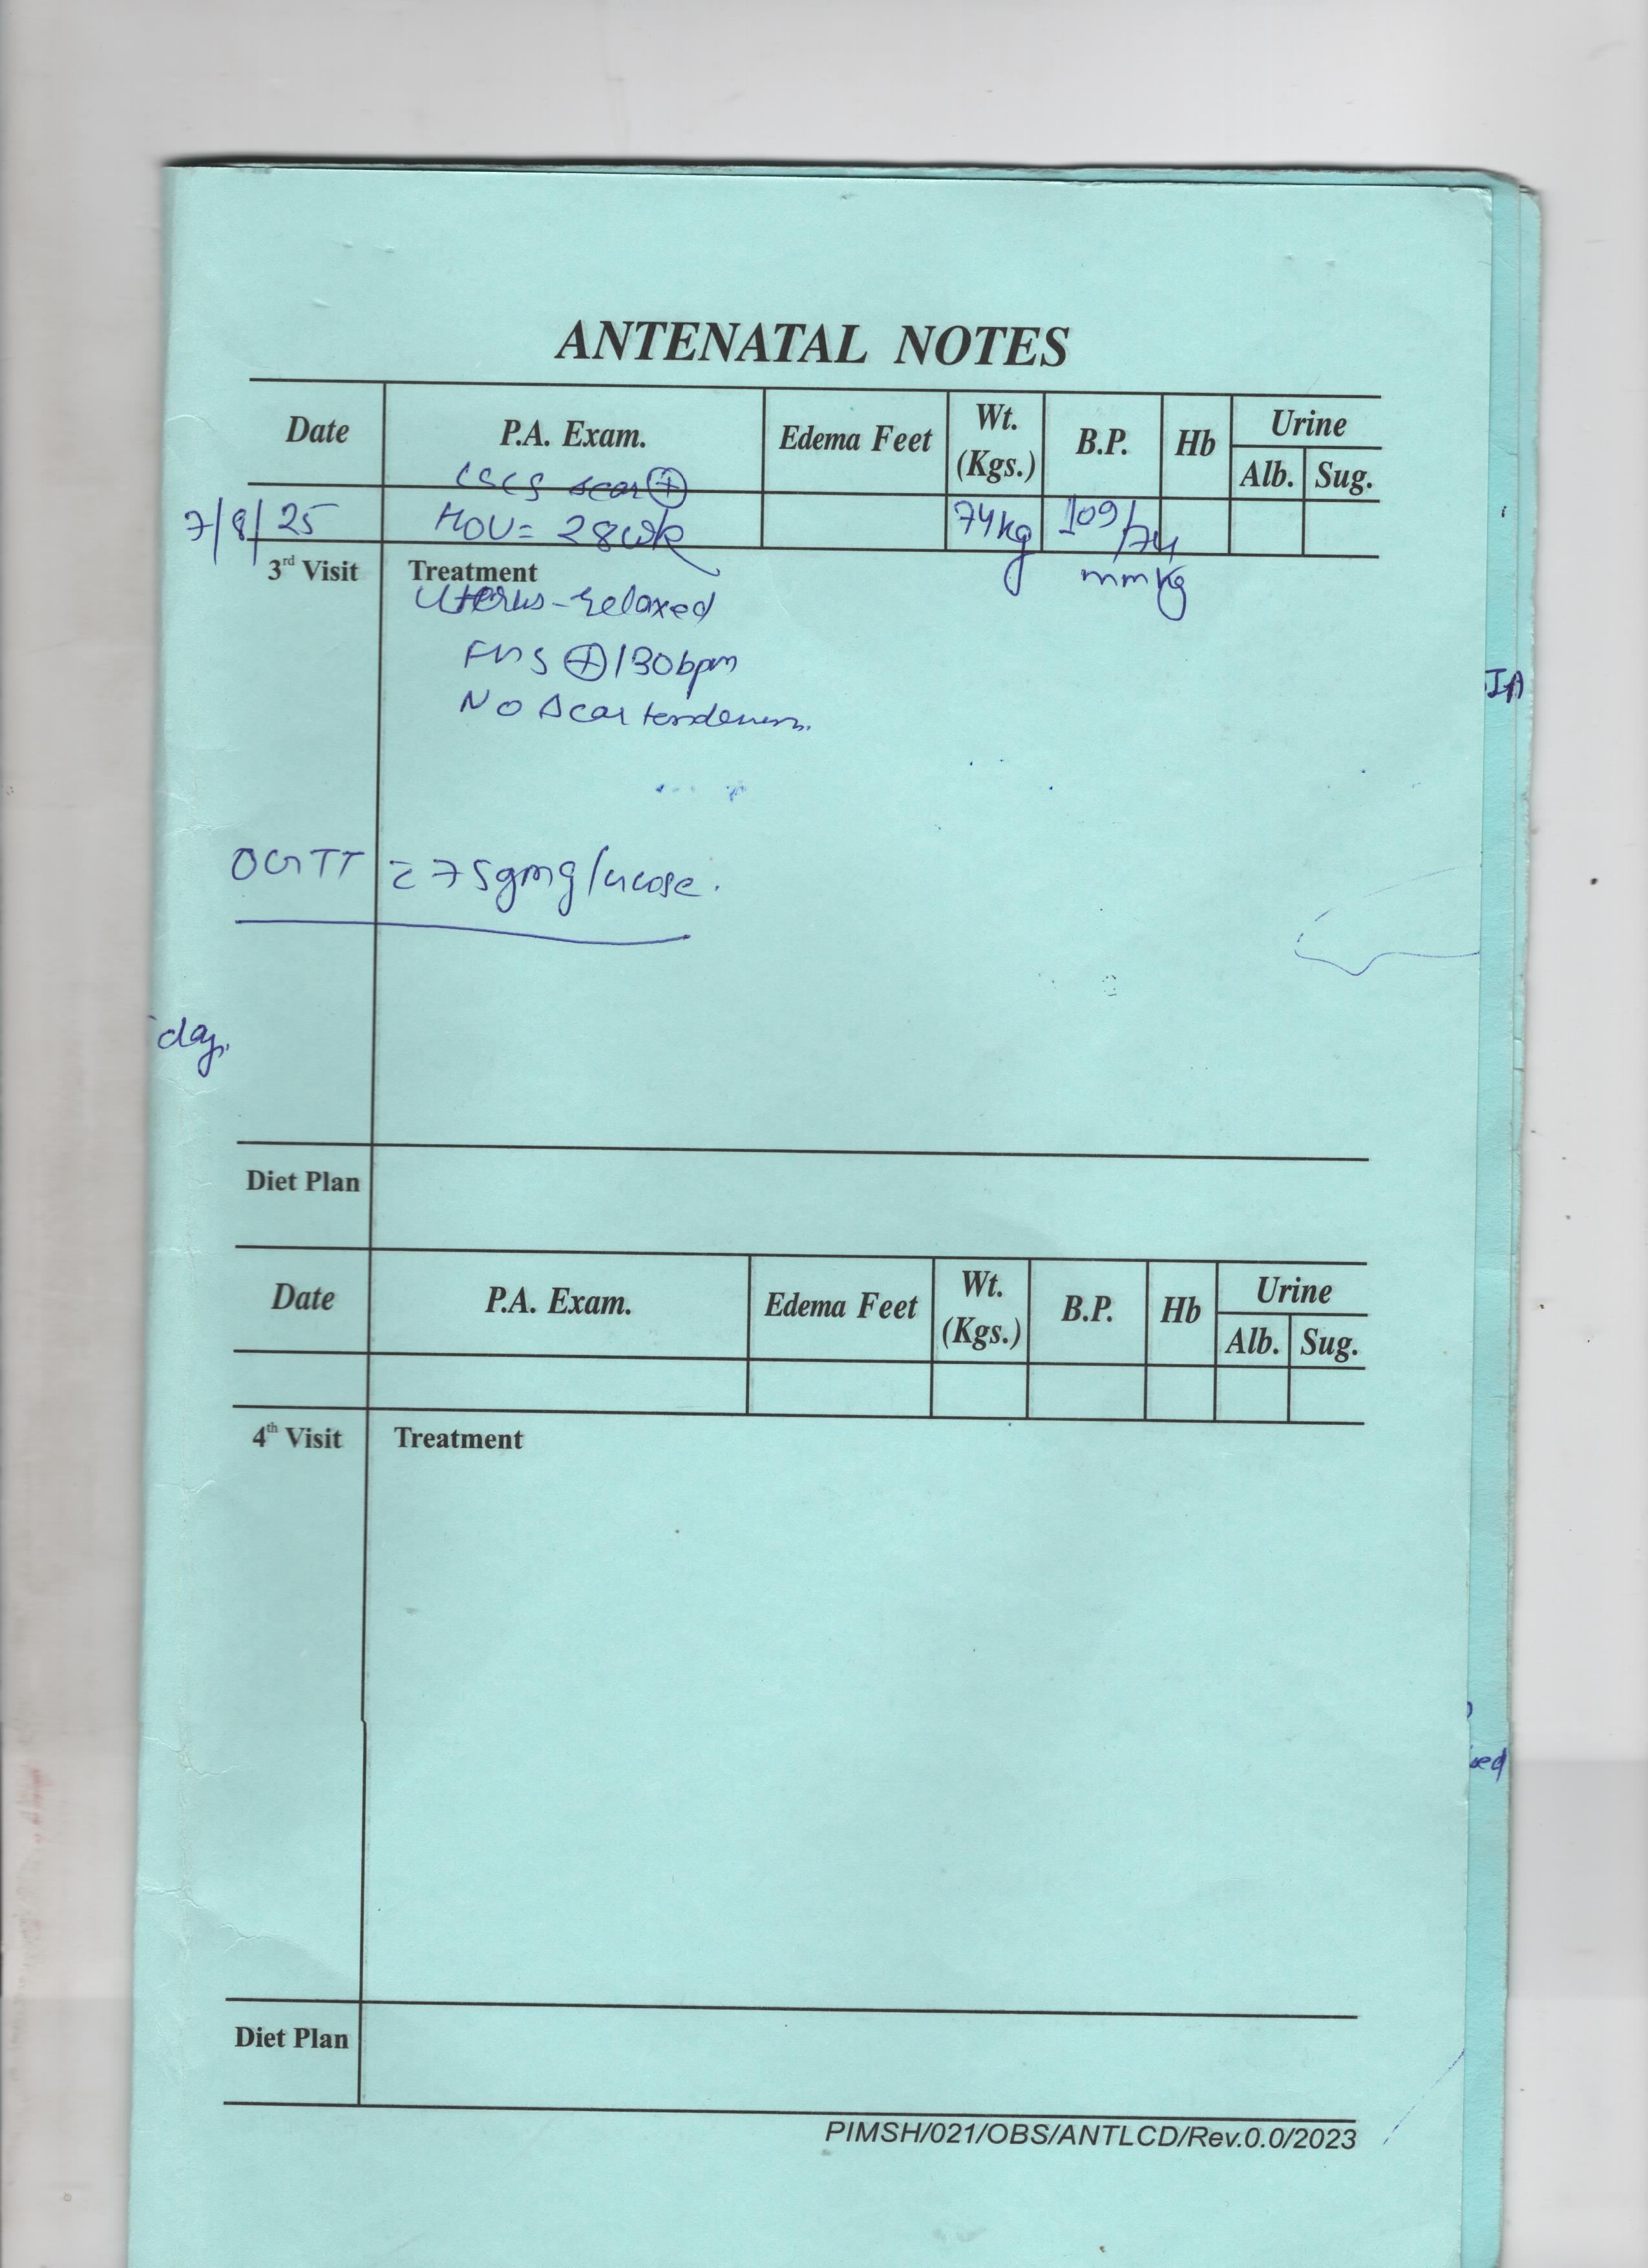 ANTENATAL NOTES
Date P.A. Exam. Edema Feet Wt. (Kgs.) B.P. Hb Urine Alb. Sug.
LSCS scar ⊕
7/8/25 HOU = 28wk 74kg 109/74
3rd Visit Treatment mmHg
Uterus - relaxed
FHS ⊕ 130bpm
IA
No scar tenderness.
OGTT c̄ 75gm glucose.
day.
Diet Plan
Date P.A. Exam. Edema Feet Wt. (Kgs.) B.P. Hb Urine Alb. Sug.
4th Visit Treatment
Diet Plan
PIMSH/021/OBS/ANTLCD/Rev.0.0/2023